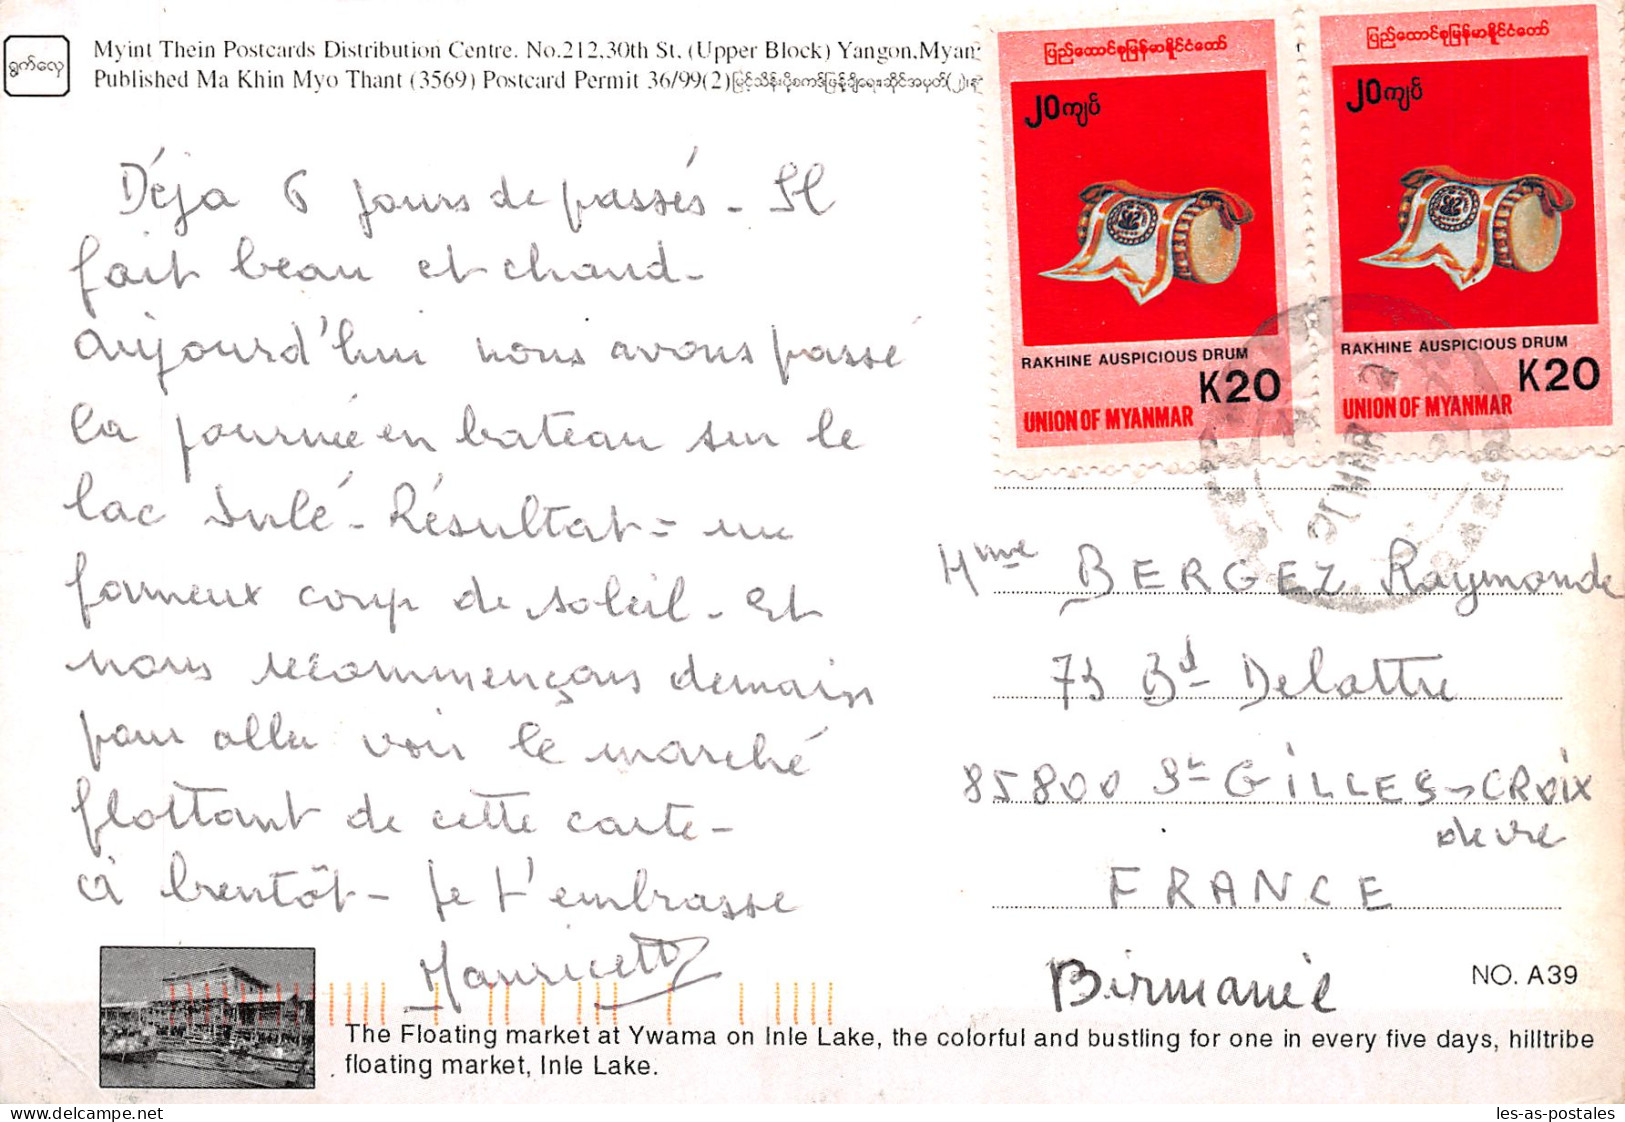 ရွက်လှေ
Myint Thein Postcards Distribution Centre. No.212,30th St, (Upper Block) Yangon,Myanm
Published Ma Khin Myo Thant (3569) Postcard Permit 36/99(2)
ပြည်ထောင်စုမြန်မာနိုင်ငံတော်
၂၀ကျပ်
RAKHINE AUSPICIOUS DRUM
K20
UNION OF MYANMAR
ပြည်ထောင်စုမြန်မာနိုင်ငံတော်
၂၀ကျပ်
RAKHINE AUSPICIOUS DRUM
K20
UNION OF MYANMAR
Déja 6 jours de passés - Il
fait beau et chaud -
aujourd'hui nous avons passé
la journée en bateau sur le
lac Inlé - Résultat = un
fameux coup de soleil - Et
nous recommençons demain
pour aller voir le marché
flottant de cette carte -
à bientôt - Je t'embrasse
Mauricette
Mme BERGEZ Raymonde
73 Bd Delattre
85800 St GILLES-CROIX
de vie
FRANCE
Birmanie
NO. A39
The Floating market at Ywama on Inle Lake, the colorful and bustling for one in every five days, hilltribe
floating market, Inle Lake.
delcampe.net
les-as-postales